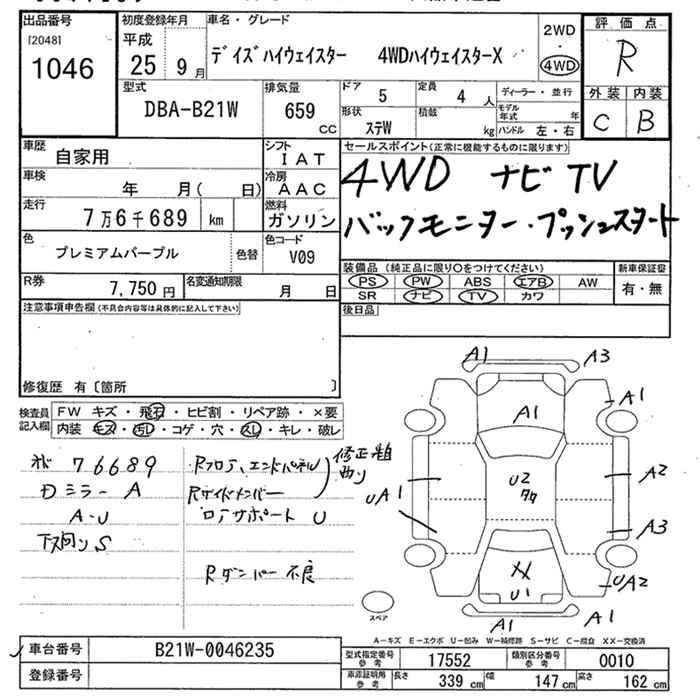 出品番号
[2048]
1046
初度登録年月
平成
25 9月
車名・グレード
デイズハイウェイスター 4WDハイウェイスターX
2WD
・
4WD
評価点
R
外装 内装
C B
型式
DBA-B21W
排気量
659
CC
ドア
5
定員
4 人
ディーラー・並行
形状
ステW
積載
kg
モデル年式 年
ハンドル 左・右
車歴
自家用
シフト
IAT
車検
年 月( 日)
冷房
AAC
走行
7万6千689 km
燃料
ガソリン
色
プレミアムパープル
色替
色コード
V09
R券
7,750円
名変通知期限
月 日
セールスポイント(正常に機能するものに限ります)
4WD ナビ TV
バックモニター・プッシュスタート
装備品 (純正品に限り○をつけてください)
PS PW ABS エアB AW
SR ナビ TV カワ
新車保証書
有・無
後日品
注意事項申告欄(不具合内容等は具体的に記入して下さい)
修復歴 有〔箇所 〕
検査員
記入欄
FW キズ・飛石・ヒビ割・リペア跡・×要
内装 キズ・汚レ・コゲ・穴・スレ・キレ・破レ
76689
Dミラー A
A-U
下回り S
Rフロア、エンドパネル
Rサイドメンバー
ロアサポート U
修正跡
曲り
Rダンパー不良
A1
A3
A1
A1
A2
U2
UA1
A3
UA2
U1
A1
A1
スペア
A-キズ E-エクボ U-凹み W-補修跡 S-サビ C-腐食 XX-交換済
車台番号
B21W-0046235
登録番号
型式指定番号
参考
17552
類別区分番号
参考
0010
車庫証明用
参考
長さ
339 cm
幅
147 cm
高さ
162 cm